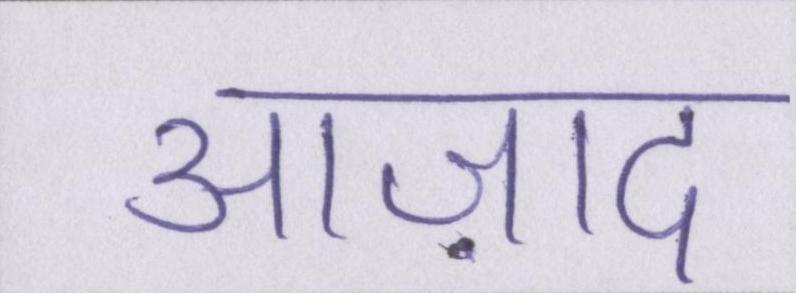 आज़ाद